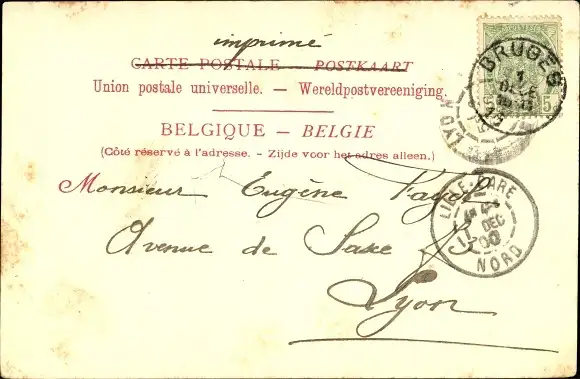 imprimé
CARTE POSTALE – POSTKAART
Union postale universelle. – Wereldpostvereeniging.
BELGIQUE – BELGIE
(Côté réservé à l'adresse. – Zijde voor het adres alleen.)
Monsieur Eugène Fayol
Avenue de Saxe
Lyon
BRUGES
5
LYON
LILLE-GARE
11 DEC
00
NORD